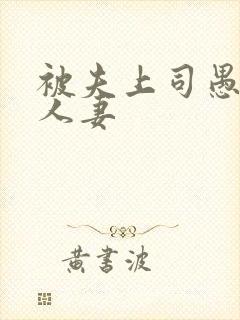 被夫上司愚
人妻
黄书波